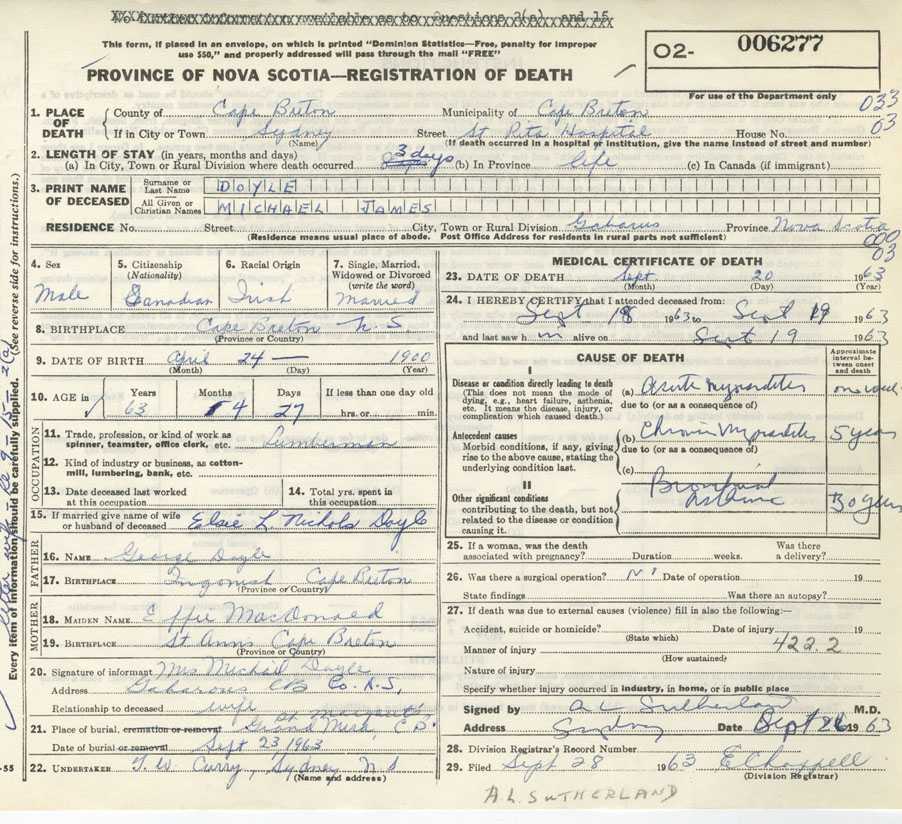 No further information available as to Questions 2(a) and 15
This form, if placed in an envelope, on which is printed "Dominion Statistics—Free, penalty for improper
use $50," and properly addressed will pass through the mail "FREE"
PROVINCE OF NOVA SCOTIA—REGISTRATION OF DEATH
02- 006277
For use of the Department only
033
03
1. PLACE OF DEATH
County of Cape Breton Municipality of Cape Breton
If in City or Town Sydney Street St Rita Hospital House No.
(Name) (If death occurred in a hospital or institution, give the name instead of street and number)
2. LENGTH OF STAY (in years, months and days)
(a) In City, Town or Rural Division where death occurred 3 days (b) In Province life (c) In Canada (if immigrant)
3. PRINT NAME OF DECEASED
Surname or Last Name DOYLE
All Given or Christian Names MICHAEL JAMES
RESIDENCE No. Street City, Town or Rural Division Gabarus Province Nova Scotia
(Residence means usual place of abode. Post Office Address for residents in rural parts not sufficient)
000
03
4. Sex Male
5. Citizenship (Nationality) Canadian
6. Racial Origin Irish
7. Single, Married, Widowed or Divorced (write the word) Married
8. BIRTHPLACE Cape Breton N.S.
(Province or Country)
9. DATE OF BIRTH April 24 — 1900
(Month) (Day) (Year)
10. AGE in Years 63 Months 4 Days 27 If less than one day old hrs. or min.
OCCUPATION
11. Trade, profession, or kind of work as spinner, teamster, office clerk, etc. Lumberman
12. Kind of industry or business, as cotton-mill, lumbering, bank, etc.
13. Date deceased last worked at this occupation
14. Total yrs. spent in this occupation
15. If married give name of wife or husband of deceased Elsie L. Nichols Doyle
FATHER
16. NAME George Doyle
17. BIRTHPLACE Ingonish Cape Breton
(Province or Country)
MOTHER
18. MAIDEN NAME Effie MacDonald
19. BIRTHPLACE St Anns Cape Breton
(Province or Country)
20. Signature of informant Mrs Michael Doyle
Address Gabarous CB Co. N.S.
Relationship to deceased wife
21. Place of burial, cremation or removal Grand Mira, C B
Date of burial or removal Sept 23 1963
22. UNDERTAKER T. W. Curry, Sydney N S
(Name and address)
MEDICAL CERTIFICATE OF DEATH
23. DATE OF DEATH Sept 20 1963
(Month) (Day) (Year)
24. I HEREBY CERTIFY that I attended deceased from:
Sept 18 1963 to Sept 19 1963
and last saw him alive on Sept 19 1963
CAUSE OF DEATH
Approximate interval between onset and death
I
Disease or condition directly leading to death
(This does not mean the mode of dying, e.g., heart failure, asthenia, etc. It means the disease, injury, or complication which caused death.)
(a) Acute Myocarditis
due to (or as a consequence of)
Antecedent causes
Morbid conditions, if any, giving rise to the above cause, stating the underlying condition last.
(b) Chronic Myocarditis 5 years
due to (or as a consequence of)
(c)
II
Other significant conditions
contributing to the death, but not related to the disease or condition causing it.
Bronchial
asthma 30 years
25. If a woman, was the death associated with pregnancy? Duration weeks. Was there a delivery?
26. Was there a surgical operation? No Date of operation 19
State findings Was there an autopsy?
27. If death was due to external causes (violence) fill in also the following:—
Accident, suicide or homicide? Date of injury 19
(State which)
Manner of injury 422.2
(How sustained)
Nature of injury
Specify whether injury occurred in industry, in home, or in public place
Signed by A L Sutherland M.D.
Address Sydney Date Sept 26 1963
28. Division Registrar's Record Number
29. Filed Sept 28 1963 E Chappell
(Division Registrar)
A.L. SUTHERLAND
Every item of information should be carefully supplied. (See reverse side for instructions.)
-55